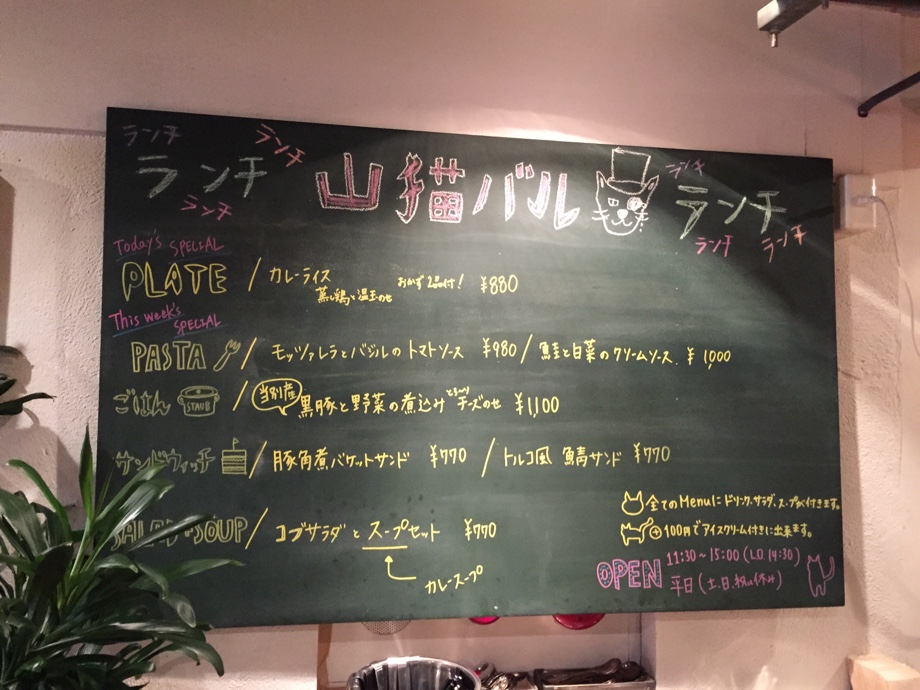 ランチ ランチ
ランチ 山猫バル ランチ
ランチ ランチ
ランチ ランチ
Today's SPECIAL
PLATE / カレーライス おかず2品付! ¥880
蒸し鶏と温玉のせ
This week's SPECIAL
PASTA / モッツァレラとバジルのトマトソース ¥980 / 鮭と白菜のクリームソース ¥1,000
ごはん STAUB / 当別産 黒豚と野菜の煮込み とろ〜り チーズのせ ¥1,100
サンドウィッチ / 豚角煮バケットサンド ¥770 / トルコ風 鯖サンド ¥770
全てのMenuにドリンク、サラダ、スープが付きます。
SALAD+SOUP / コブサラダとスープセット ¥770
+100円でアイスクリーム付きに出来ます。
カレースープ
OPEN 11:30~15:00 (L.O. 14:30)
平日(土.日.祝い休み)